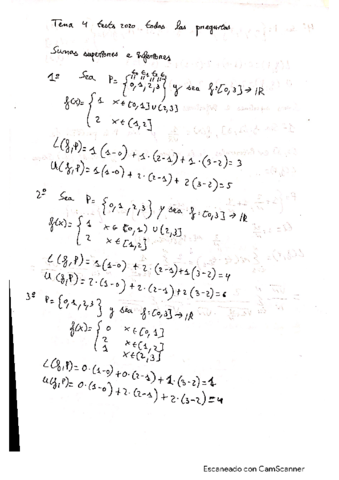 Tema 4 tests 2020 todas las preguntas
Sumas superiores e inferiores
1º Sea P= {0,1,2,3} y sea f:[0,3]→IR
f(x)= { 1 x∈[0,1]∪(2,3]
2 x∈(1,2]
L(f,P)=1(1-0)+1·(2-1)+1·(3-2)=3
U(f,P)=1(1-0)+2·(2-1)+2(3-2)=5
2º Sea P= {0,1,2,3} y sea f:[0,3]→IR
f(x)= { 1 x∈[0,1)∪(2,3]
2 x∈[1,2]
L(f,P)=1(1-0)+2·(2-1)+1(3-2)=4
U(f,P)=2·(1-0)+2·(2-1)+2(3-2)=6
3º P={0,1,2,3} y sea f:[0,3]→IR
f(x)= { 0 x∈[0,1]
2 x∈(1,2]
1 x∈(2,3]
L(f,P)=0·(1-0)+0·(2-1)+1·(3-2)=1
U(f,P)=0·(1-0)+2·(2-1)+2·(3-2)=4
Escaneado con CamScanner